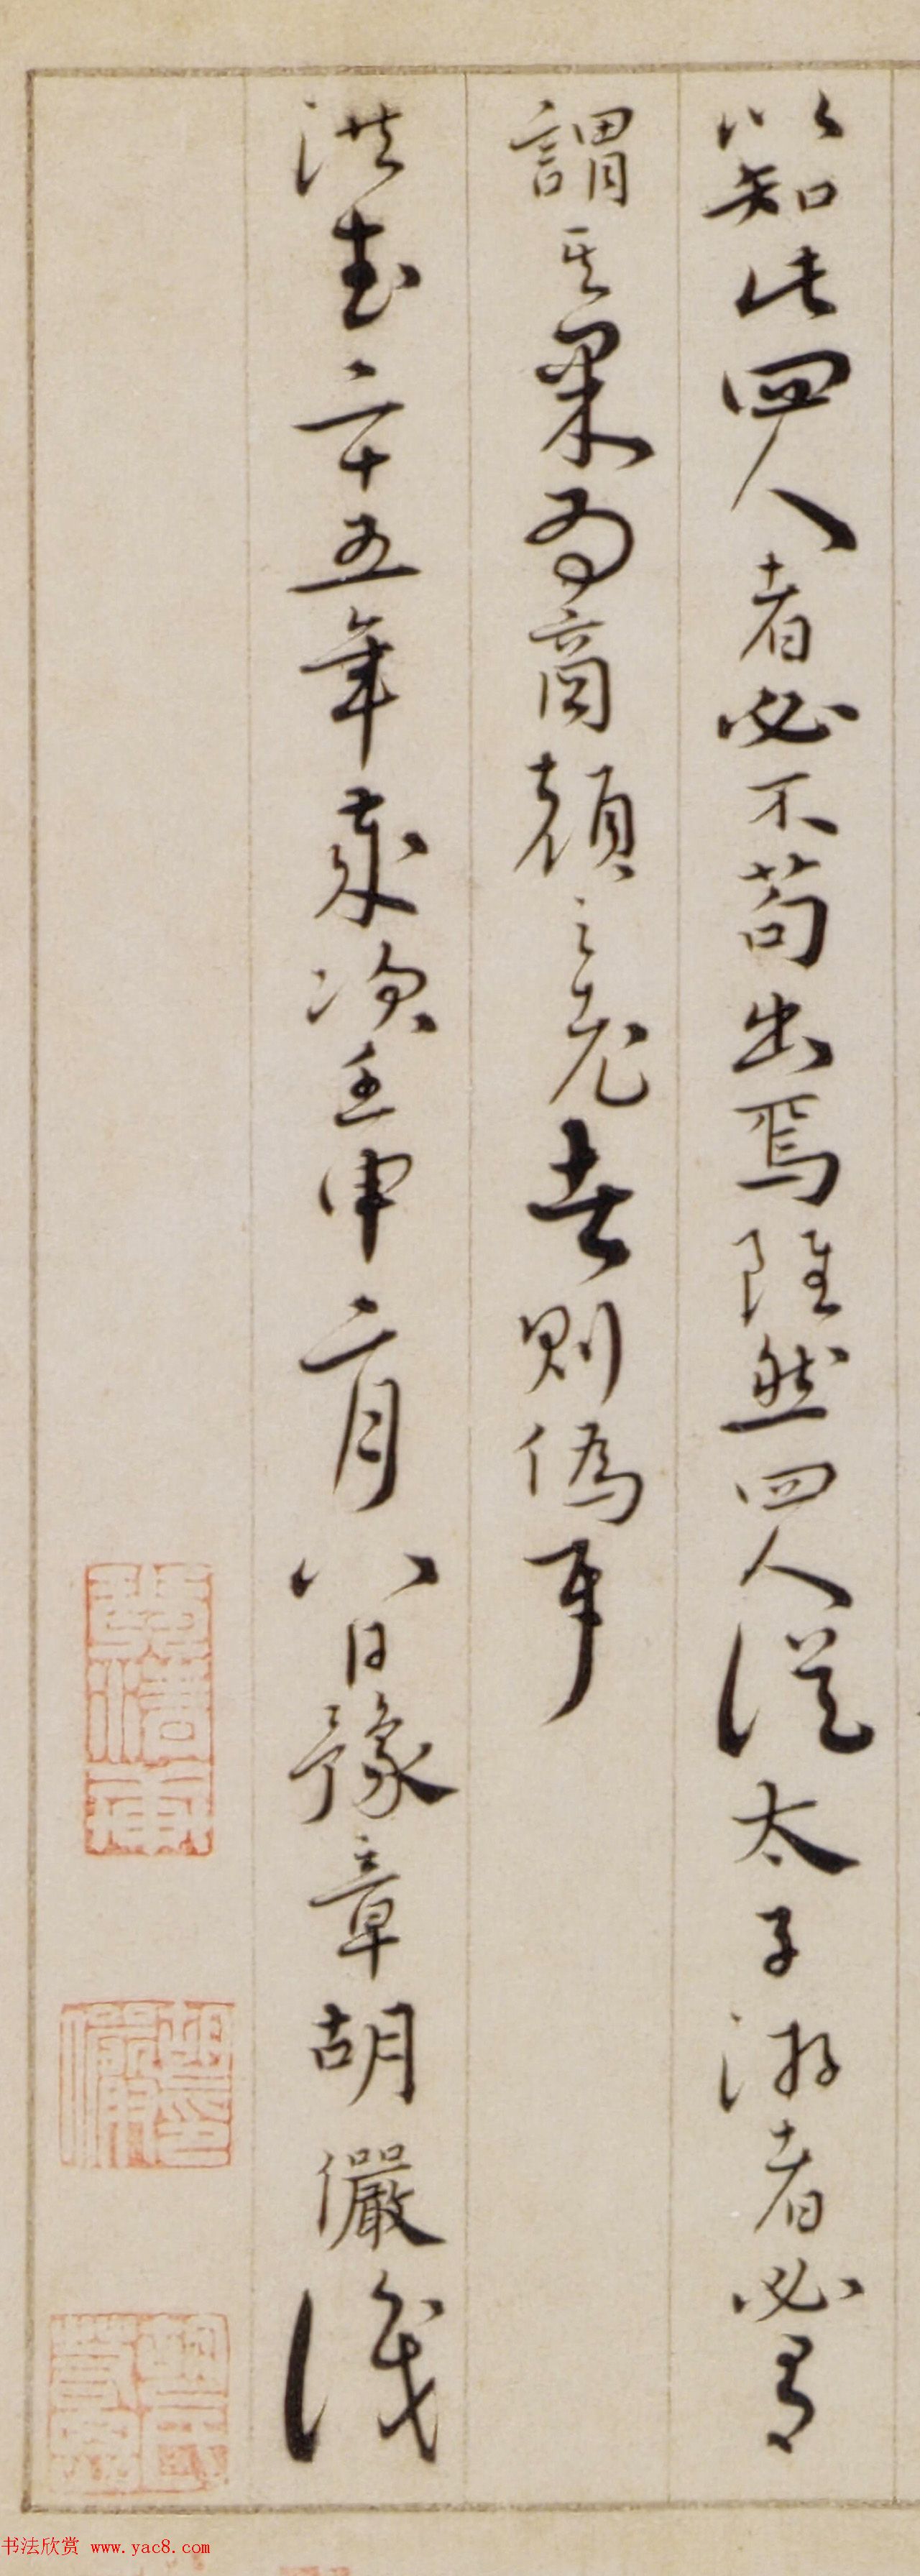 以知此四人者必不苟出焉雖然四人從太子游者必有
謂其果為商顏之老者則偽耳
洪武二十五年歲次壬申二月八日豫章胡儼識
胡儼
书法欣赏 www.yac8.com